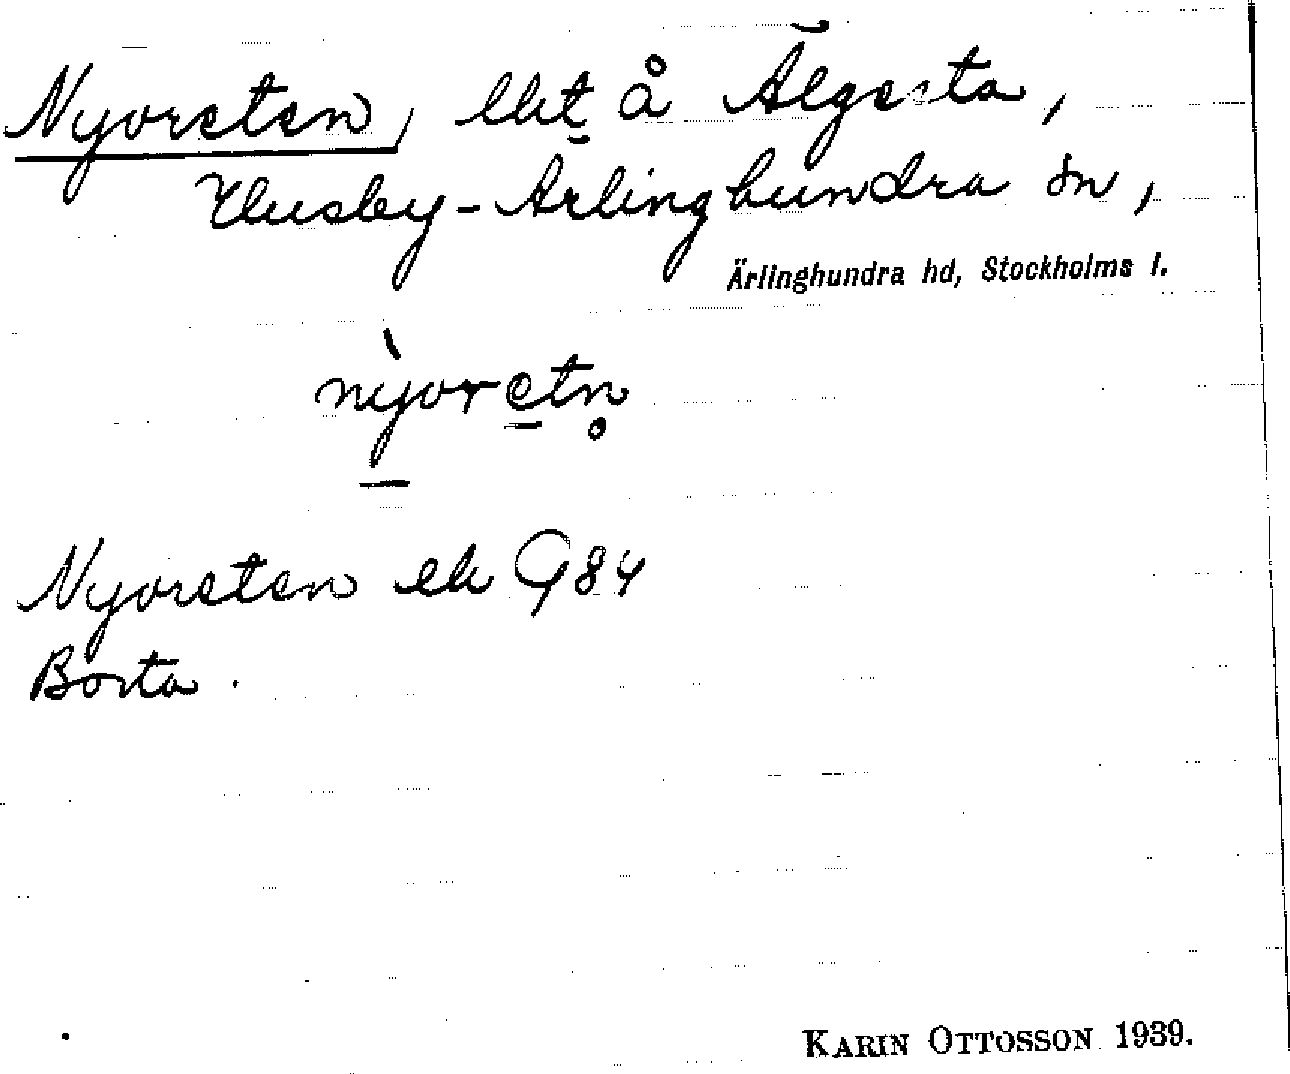 Nyorsten, lht å Älgesta,
Husby-Ärlinghundra sn,
Ärlinghundra hd, Stockholms l.
nỳorstn̥
Nyorsten ek G84
Borta.
KARIN OTTOSSON 1939.